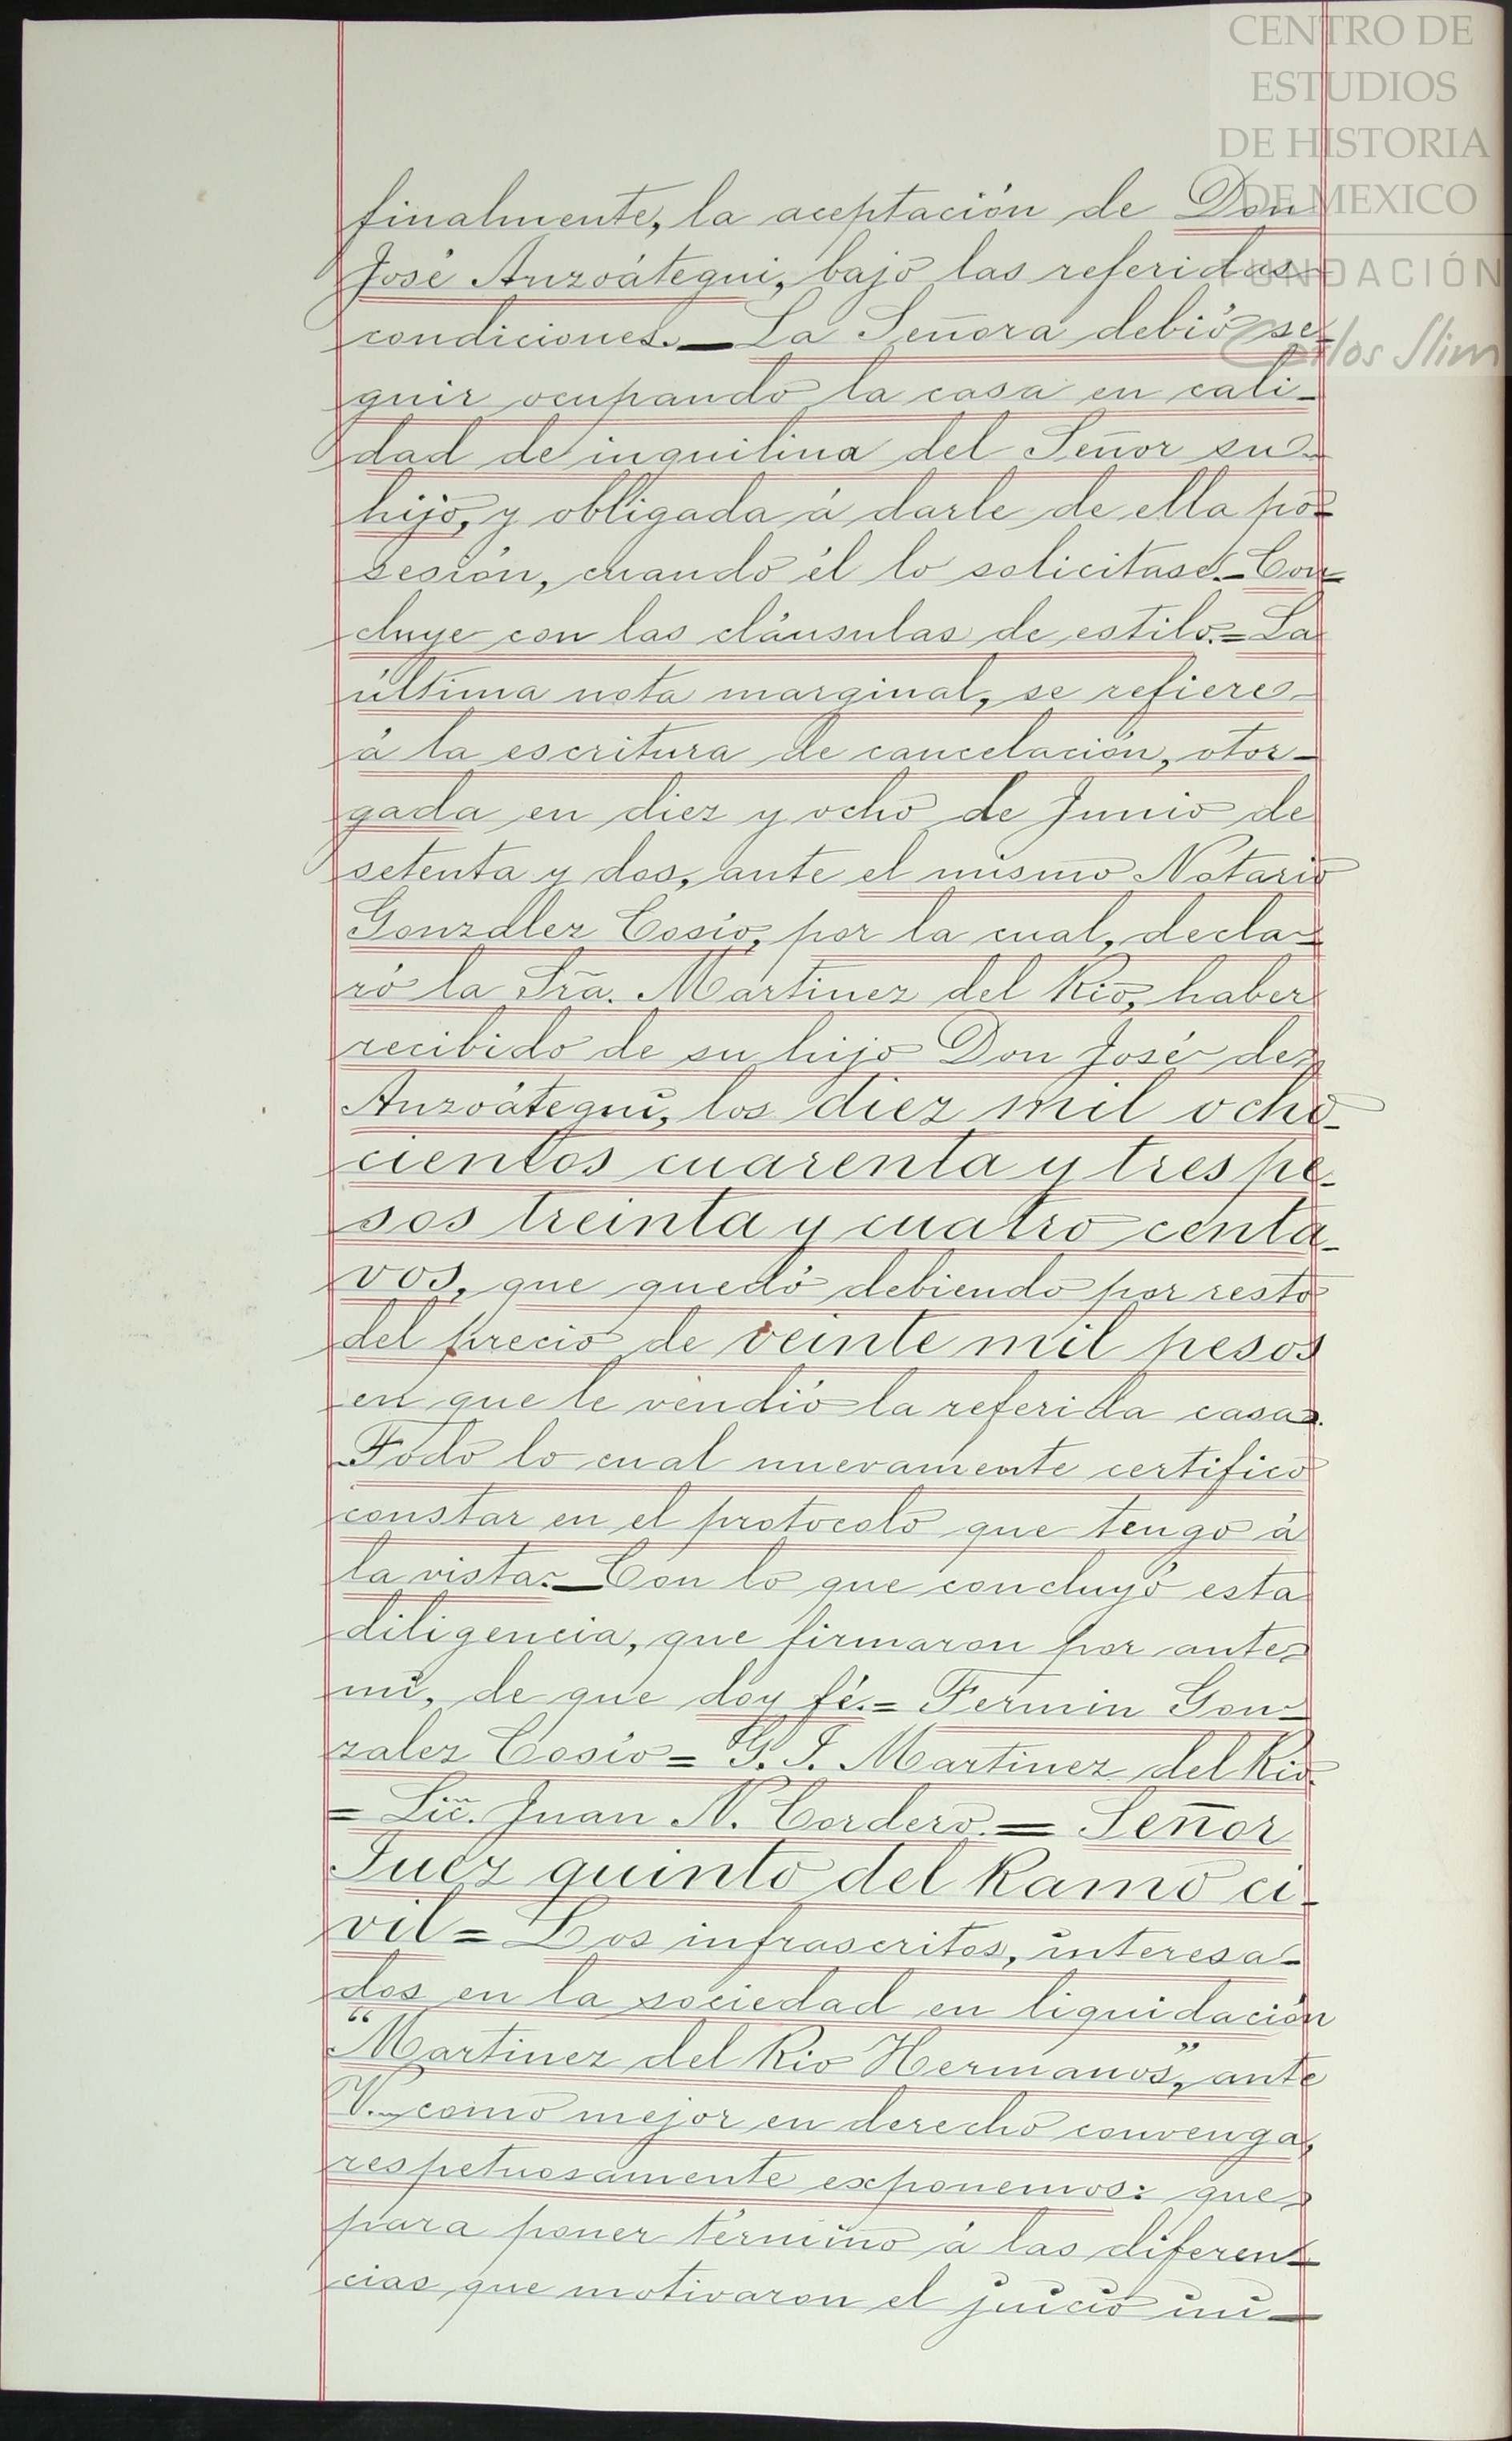 CENTRO DE
ESTUDIOS
DE HISTORIA
DE MEXICO
FUNDACIÓN
Carlos Slim
finalmente, la aceptación de Don
José Anzoátegui, bajo las referidas
condiciones.— La Señora debió se-
guir ocupando la casa en cali-
dad de inquilina del Señor su
hijo, y obligada á darle de ella po-
sesión, cuando él lo solicitase.- Con-
cluye con las cláusulas de estilo.= La
última nota marginal, se refiere
á la escritura de cancelación, otor-
gada en diez y ocho de Junio de
setenta y dos, ante el mismo Notario
González Cosío, por la cual, decla-
ró la Sra. Martinez del Rio, haber
recibido de su hijo Don José de
Anzoátegui, los diez mil ocho-
cientos cuarenta y tres pe-
sos treinta y cuatro centa-
vos, que quedó debiendo por resto
del precio de veinte mil pesos
en que le vendió la referida casa.
Todo lo cual nuevamente certifico
constar en el protocolo que tengo á
la vista.— Con lo que concluyó esta
diligencia, que firmaron por ante
mí, de que doy fé.= Fermin Gon-
zalez Cosío = G. I. Martinez del Rio.
= Lic. Juan N. Cordero.= Señor
Juez quinto del Ramo ci-
vil = Los infrascritos, interesa-
dos en la sociedad en liquidación
"Martinez del Rio Hermanos", ante
V. como mejor en derecho convenga,
respetuosamente exponemos: que
para poner término á las diferen-
cias que motivaron el juicio ini-